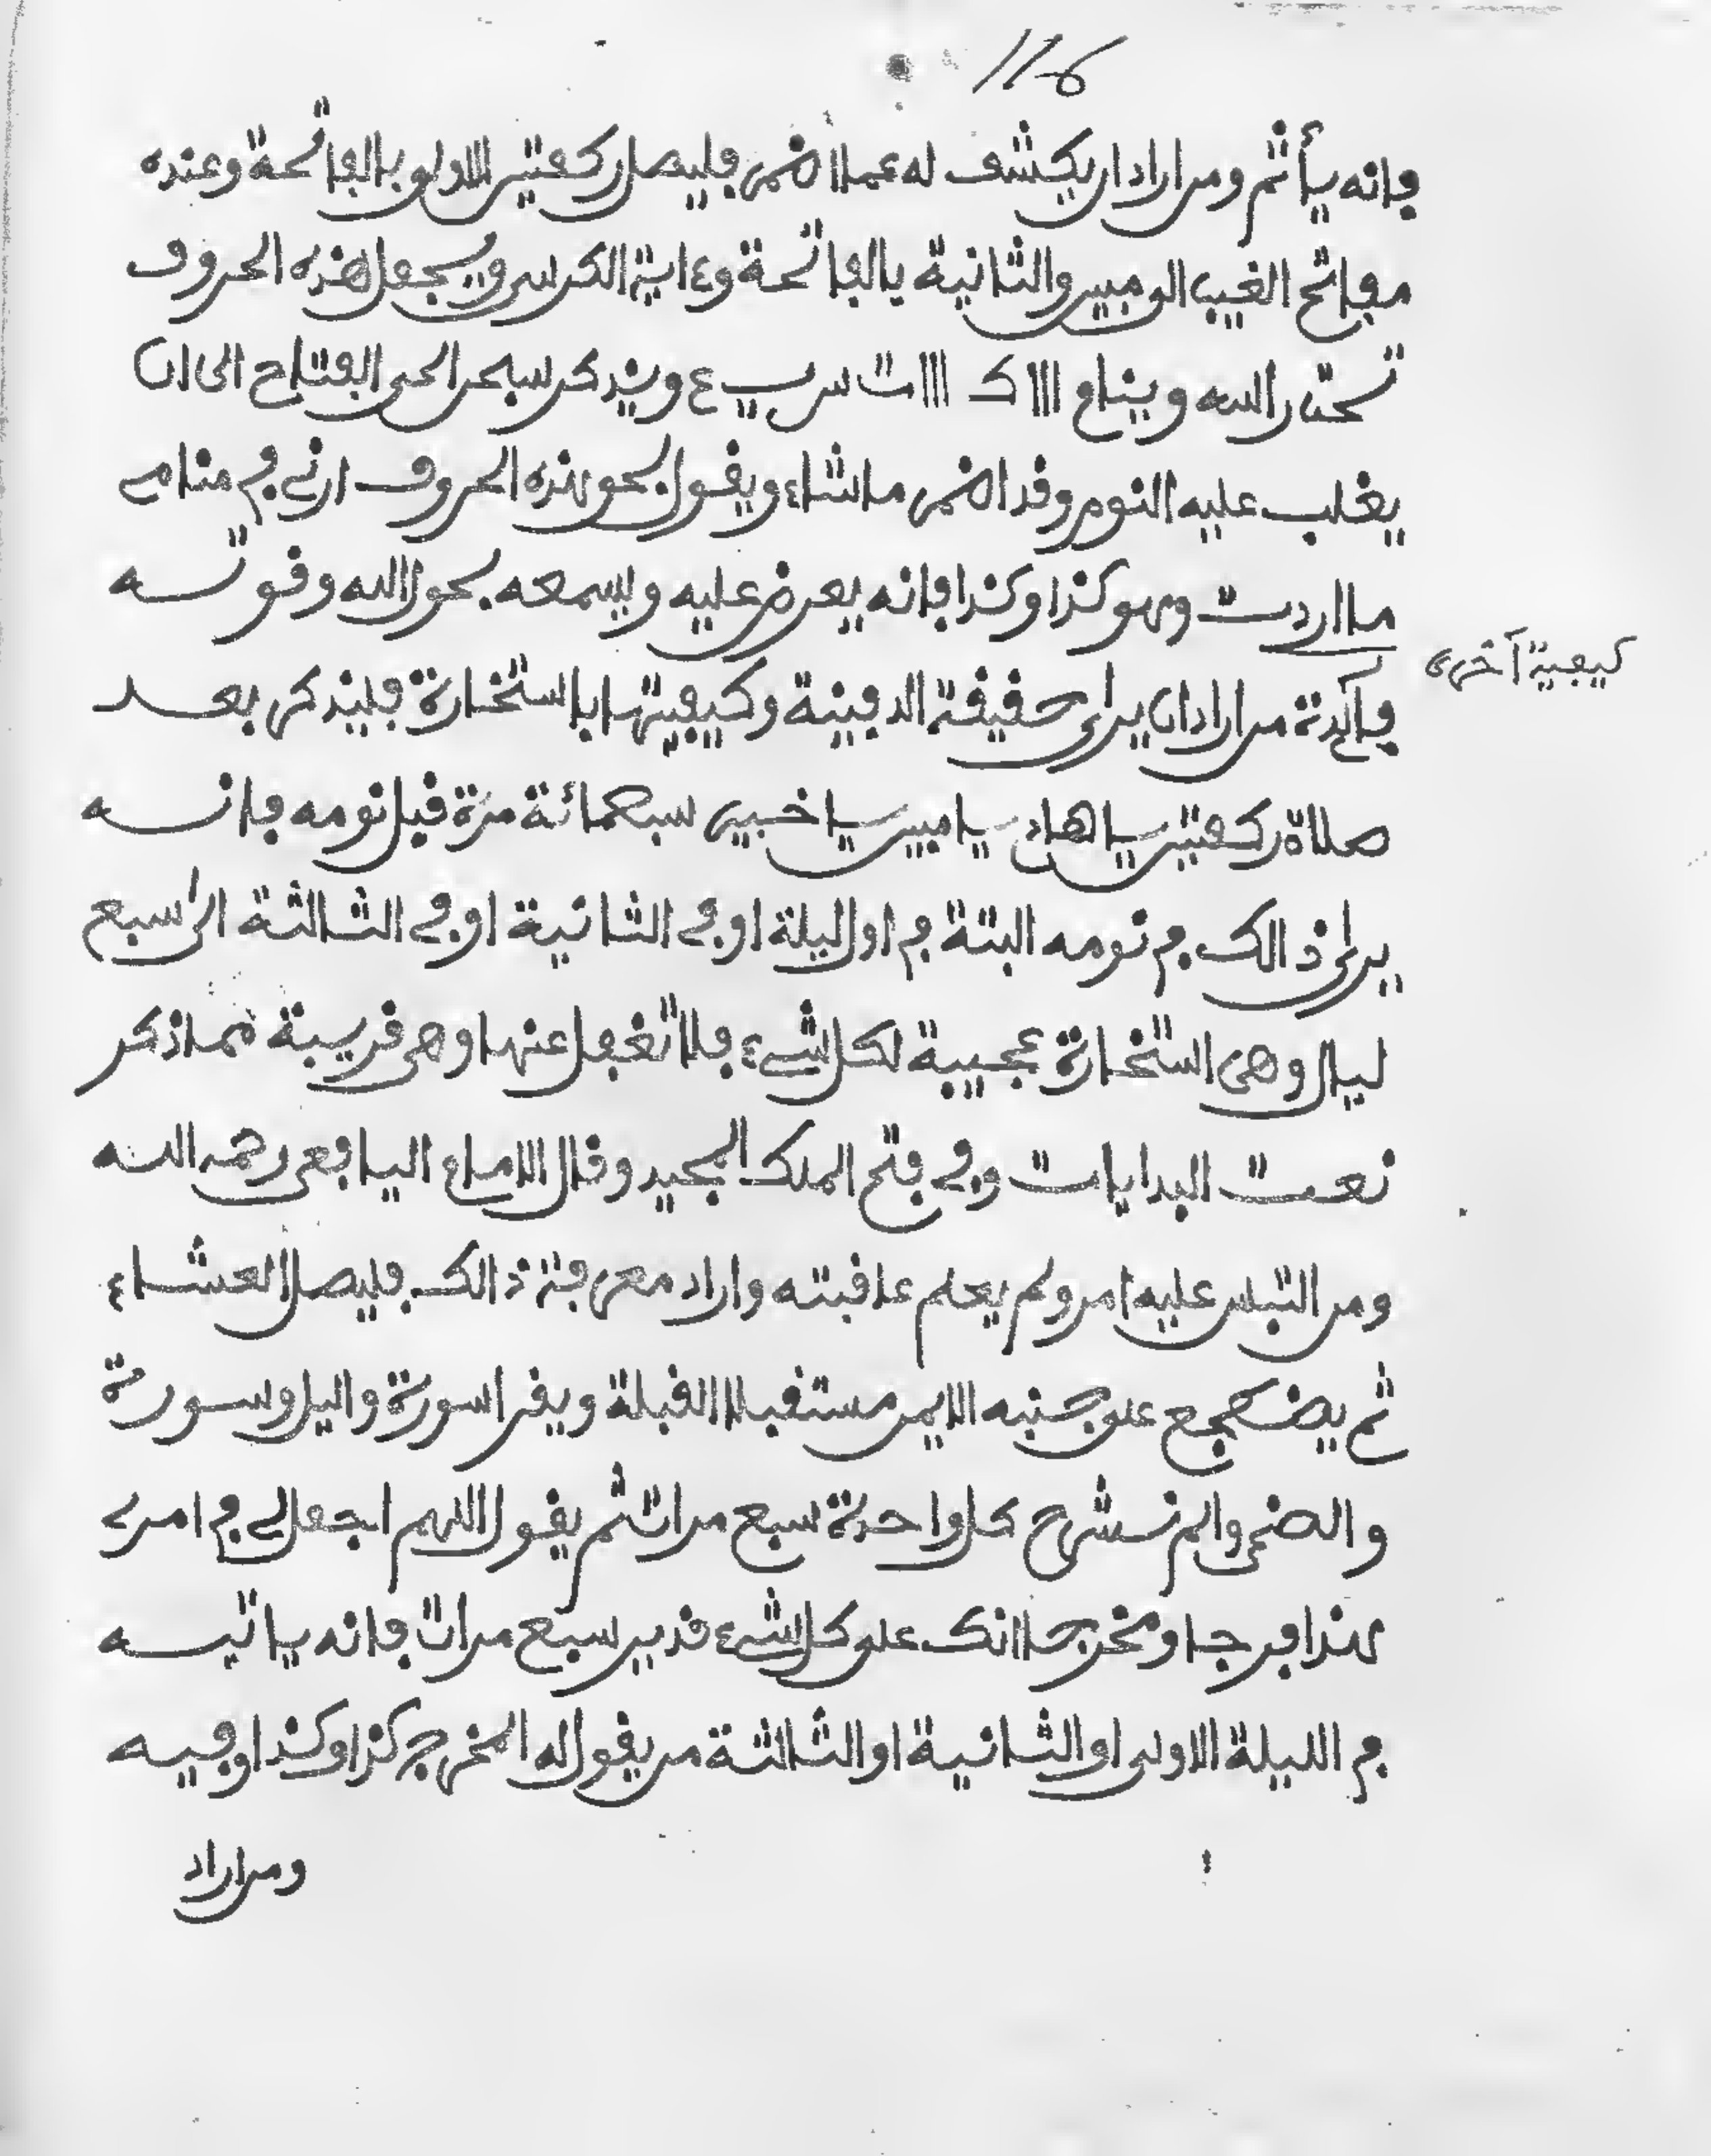 116
فإنه يأثم ومن اراد ان يكشف له عما اضمر فليصل ركعتين الاولى بالفاتحة وعنده
مفاتح الغيب الى مبين والثانية بالفاتحة وءاية الكرسي ويجعل هذه الحروف
تحت راسه وينام ااا ك ااا ت س ي ء ويذكر الحي الفتاح الى ان
يغلب عليه النوم وقد اضمر ما شاء ويقول بحق هذه الحروف ارني في منامي
ما اردت وهو كذا وكذا فإنه يعرض عليه ويسمعه بحول الله وقوته
كيفية آخرى
فآئدة من اراد ان يرى حقيقة الدفينة وكيفيتها باستخارة فليذكر بعد
صلاة ركعتين يا هادي يا مبين يا خبير سبعمائة مرة قبل نومه فإنه
يرى ذالك في نومه البتة في اول ليلة او في الثانية او في الثالثة الى سبع
ليال وهي استخارة عجيبة لكل شيء فلا تغفل عنها وهي قريبة مما ذكر
نعت البدايات وفي فتح الملك المجيد وقال الامام اليافعي رحمه الله
ومن التبس عليه امر ولم يعلم عاقبته واراد معرفة ذالك فليصل العشاء
ثم يضطجع على جنبه الايمن مستقبلا القبلة ويقرا سورة واليل وسورة
والضحى والم نشرح كل واحدة سبع مرات ثم يقول اللهم اجعل لي في امري
هذا فرجا ومخرجا انك على كل شيء قدير سبع مرات فإنه ياتيه
في الليلة الاولى او الثانية او الثالثة من يقول له المخرج كذا وكذا وفيه
ومن اراد